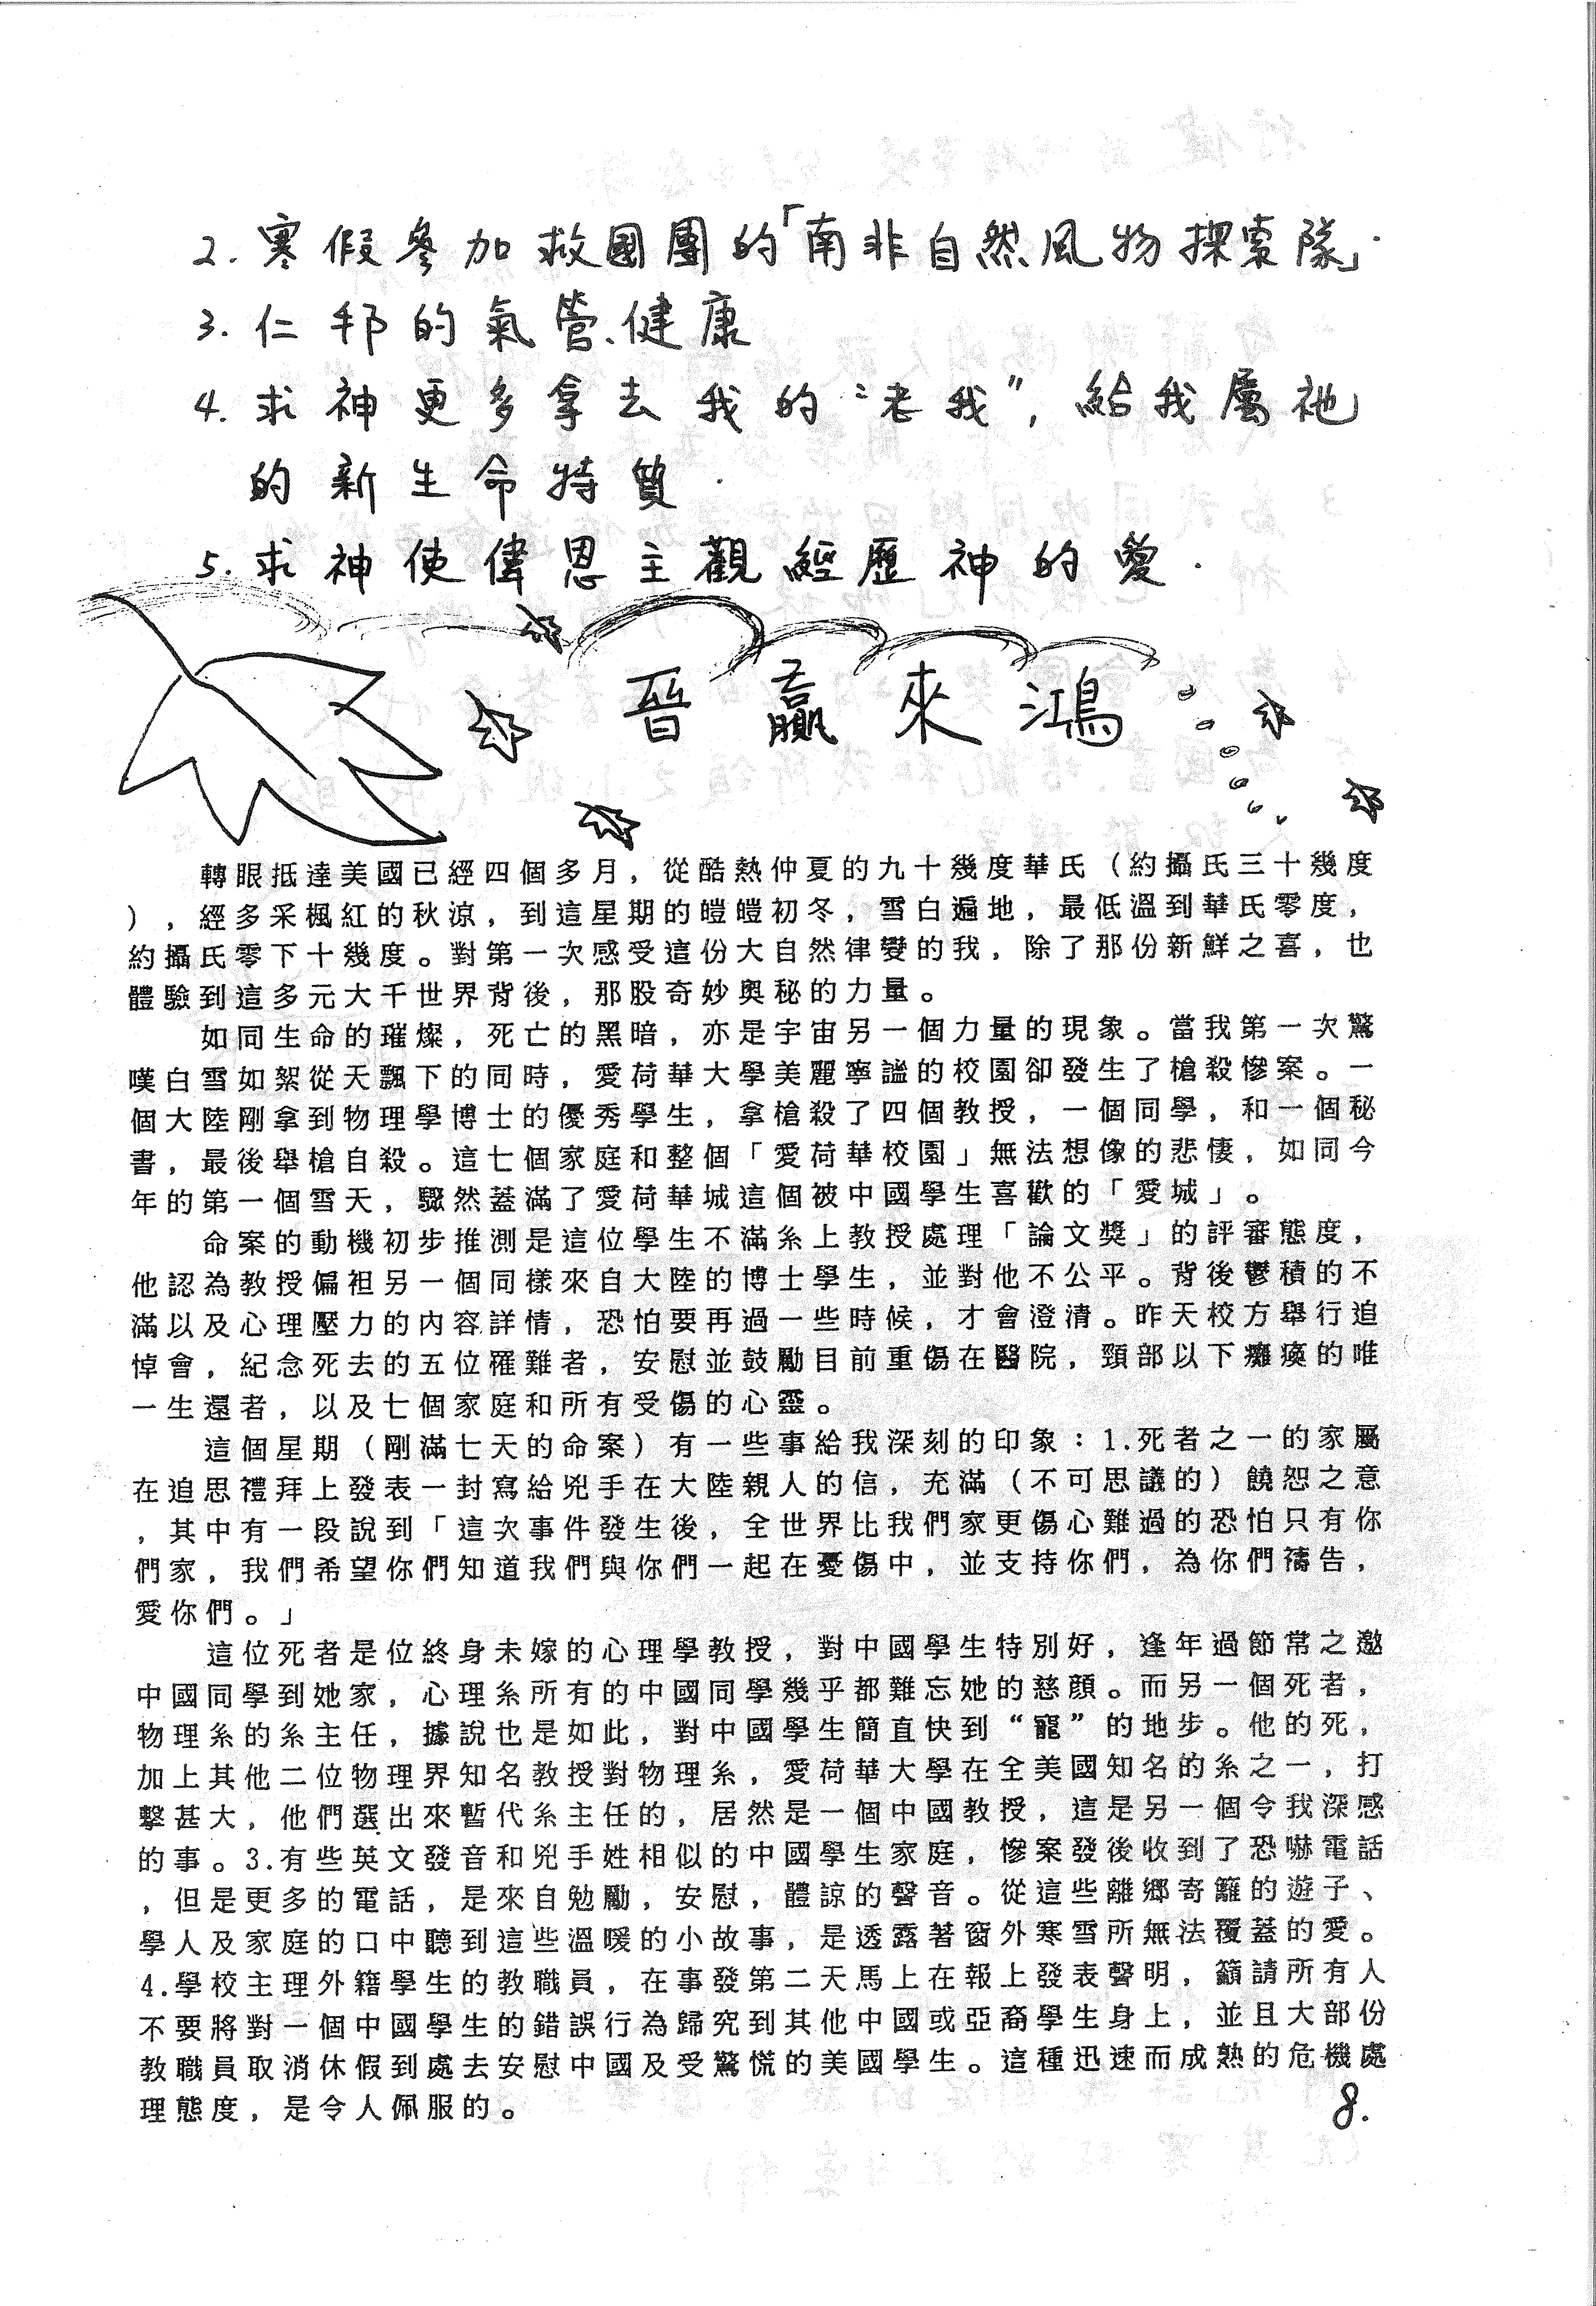 2. 寒假參加救國團的「南非自然風物探索隊」.
3. 仁邦的氣管、健康
4. 求神更多拿去我的“老我”, 給我屬祂
的新生命特質.
5. 求神使偉恩主觀經歷神的愛.
晉贏來鴻
轉眼抵達美國已經四個多月，從酷熱仲夏的九十幾度華氏（約攝氏三十幾度
），經多采楓紅的秋涼，到這星期的皚皚初冬，雪白遍地，最低溫到華氏零度，
約攝氏零下十幾度。對第一次感受這份大自然律變的我，除了那份新鮮之喜，也
體驗到這多元大千世界背後，那股奇妙奧秘的力量。
如同生命的璀燦，死亡的黑暗，亦是宇宙另一個力量的現象。當我第一次驚
嘆白雪如絮從天飄下的同時，愛荷華大學美麗寧謐的校園卻發生了槍殺慘案。一
個大陸剛拿到物理學博士的優秀學生，拿槍殺了四個教授，一個同學，和一個秘
書，最後舉槍自殺。這七個家庭和整個「愛荷華校園」無法想像的悲悽，如同今
年的第一個雪天，驟然蓋滿了愛荷華城這個被中國學生喜歡的「愛城」。
命案的動機初步推測是這位學生不滿糸上教授處理「論文獎」的評審態度，
他認為教授偏袒另一個同樣來自大陸的博士學生，並對他不公平。背後鬱積的不
滿以及心理壓力的內容詳情，恐怕要再過一些時候，才會澄清。昨天校方舉行追
悼會，紀念死去的五位罹難者，安慰並鼓勵目前重傷在醫院，頸部以下癱瘓的唯
一生還者，以及七個家庭和所有受傷的心靈。
這個星期（剛滿七天的命案）有一些事給我深刻的印象：1.死者之一的家屬
在追思禮拜上發表一封寫給兇手在大陸親人的信，充滿（不可思議的）饒恕之意
，其中有一段說到「這次事件發生後，全世界比我們家更傷心難過的恐怕只有你
們家，我們希望你們知道我們與你們一起在憂傷中，並支持你們，為你們禱告，
愛你們。」
這位死者是位終身未嫁的心理學教授，對中國學生特別好，逢年過節常之邀
中國同學到她家，心理糸所有的中國同學幾乎都難忘她的慈顏。而另一個死者，
物理糸的糸主任，據說也是如此，對中國學生簡直快到“寵”的地步。他的死，
加上其他二位物理界知名教授對物理糸，愛荷華大學在全美國知名的糸之一，打
擊甚大，他們選出來暫代糸主任的，居然是一個中國教授，這是另一個令我深感
的事。3.有些英文發音和兇手姓相似的中國學生家庭，慘案發後收到了恐嚇電話
，但是更多的電話，是來自勉勵，安慰，體諒的聲音。從這些離鄉寄籬的遊子、
學人及家庭的口中聽到這些溫暖的小故事，是透露著窗外寒雪所無法覆蓋的愛。
4.學校主理外籍學生的教職員，在事發第二天馬上在報上發表聲明，籲請所有人
不要將對一個中國學生的錯誤行為歸究到其他中國或亞裔學生身上，並且大部份
教職員取消休假到處去安慰中國及受驚慌的美國學生。這種迅速而成熟的危機處
理態度，是令人佩服的。
8.